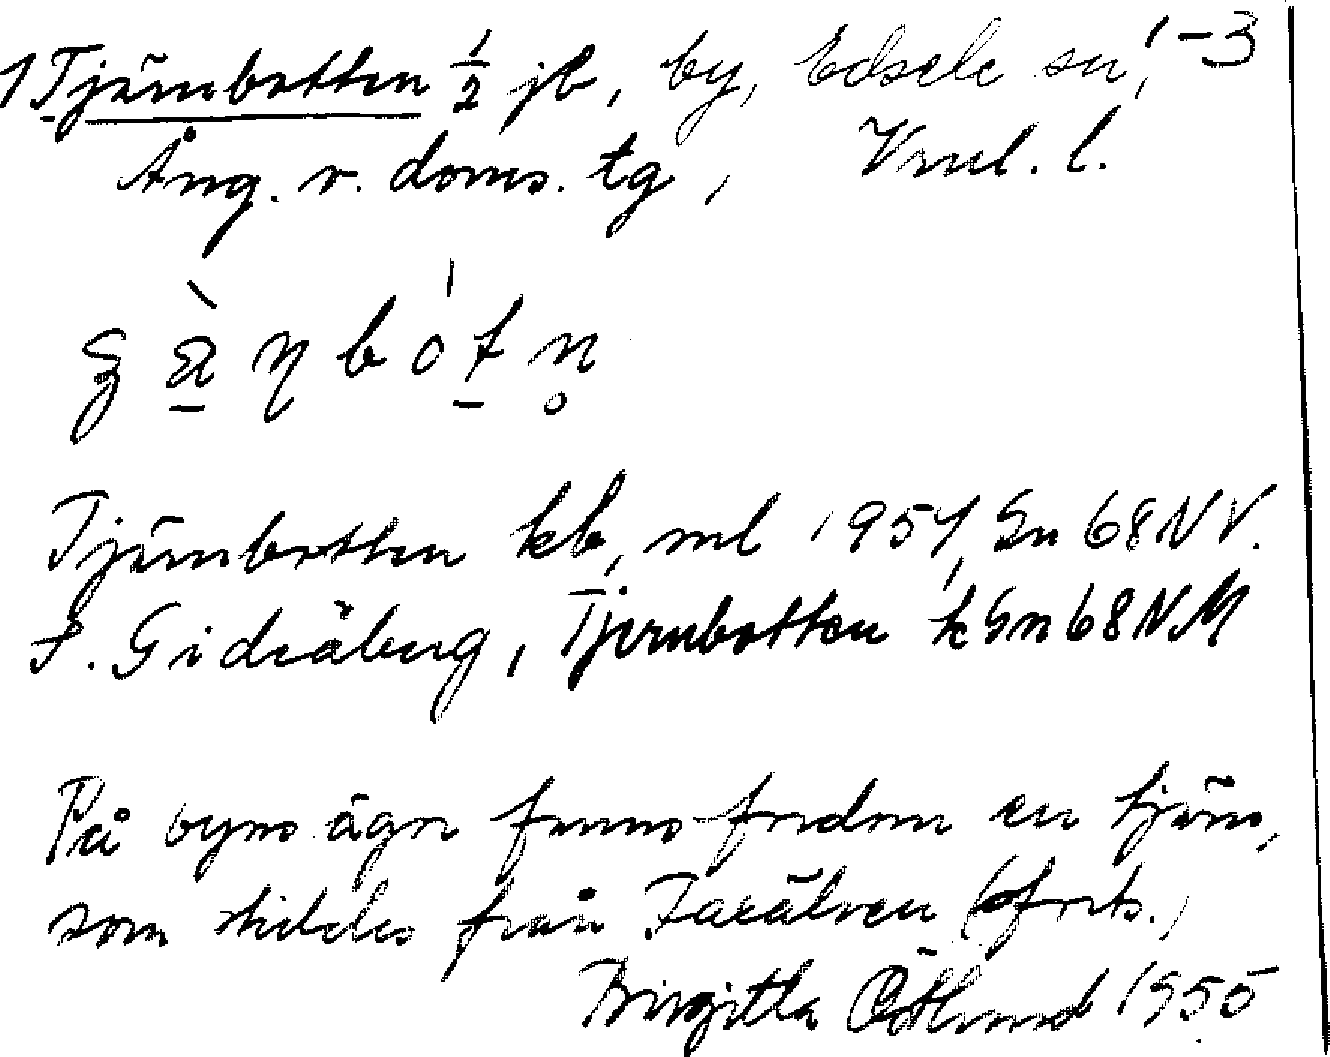 1 Tjärnbotten ½ jb, by, Edsele sn, 1-3
Ång. v. doms. tg, Vnrl. l.
Tjärnbotten kb, ml 1957, Gn 68 NV.
f. Gideåberg, Tjernbotten k Gn 68 NV
På byns ägor funns fordom en tjärn,
som skildes från Faxälven (forts.)
Birgitta Östlund 1955